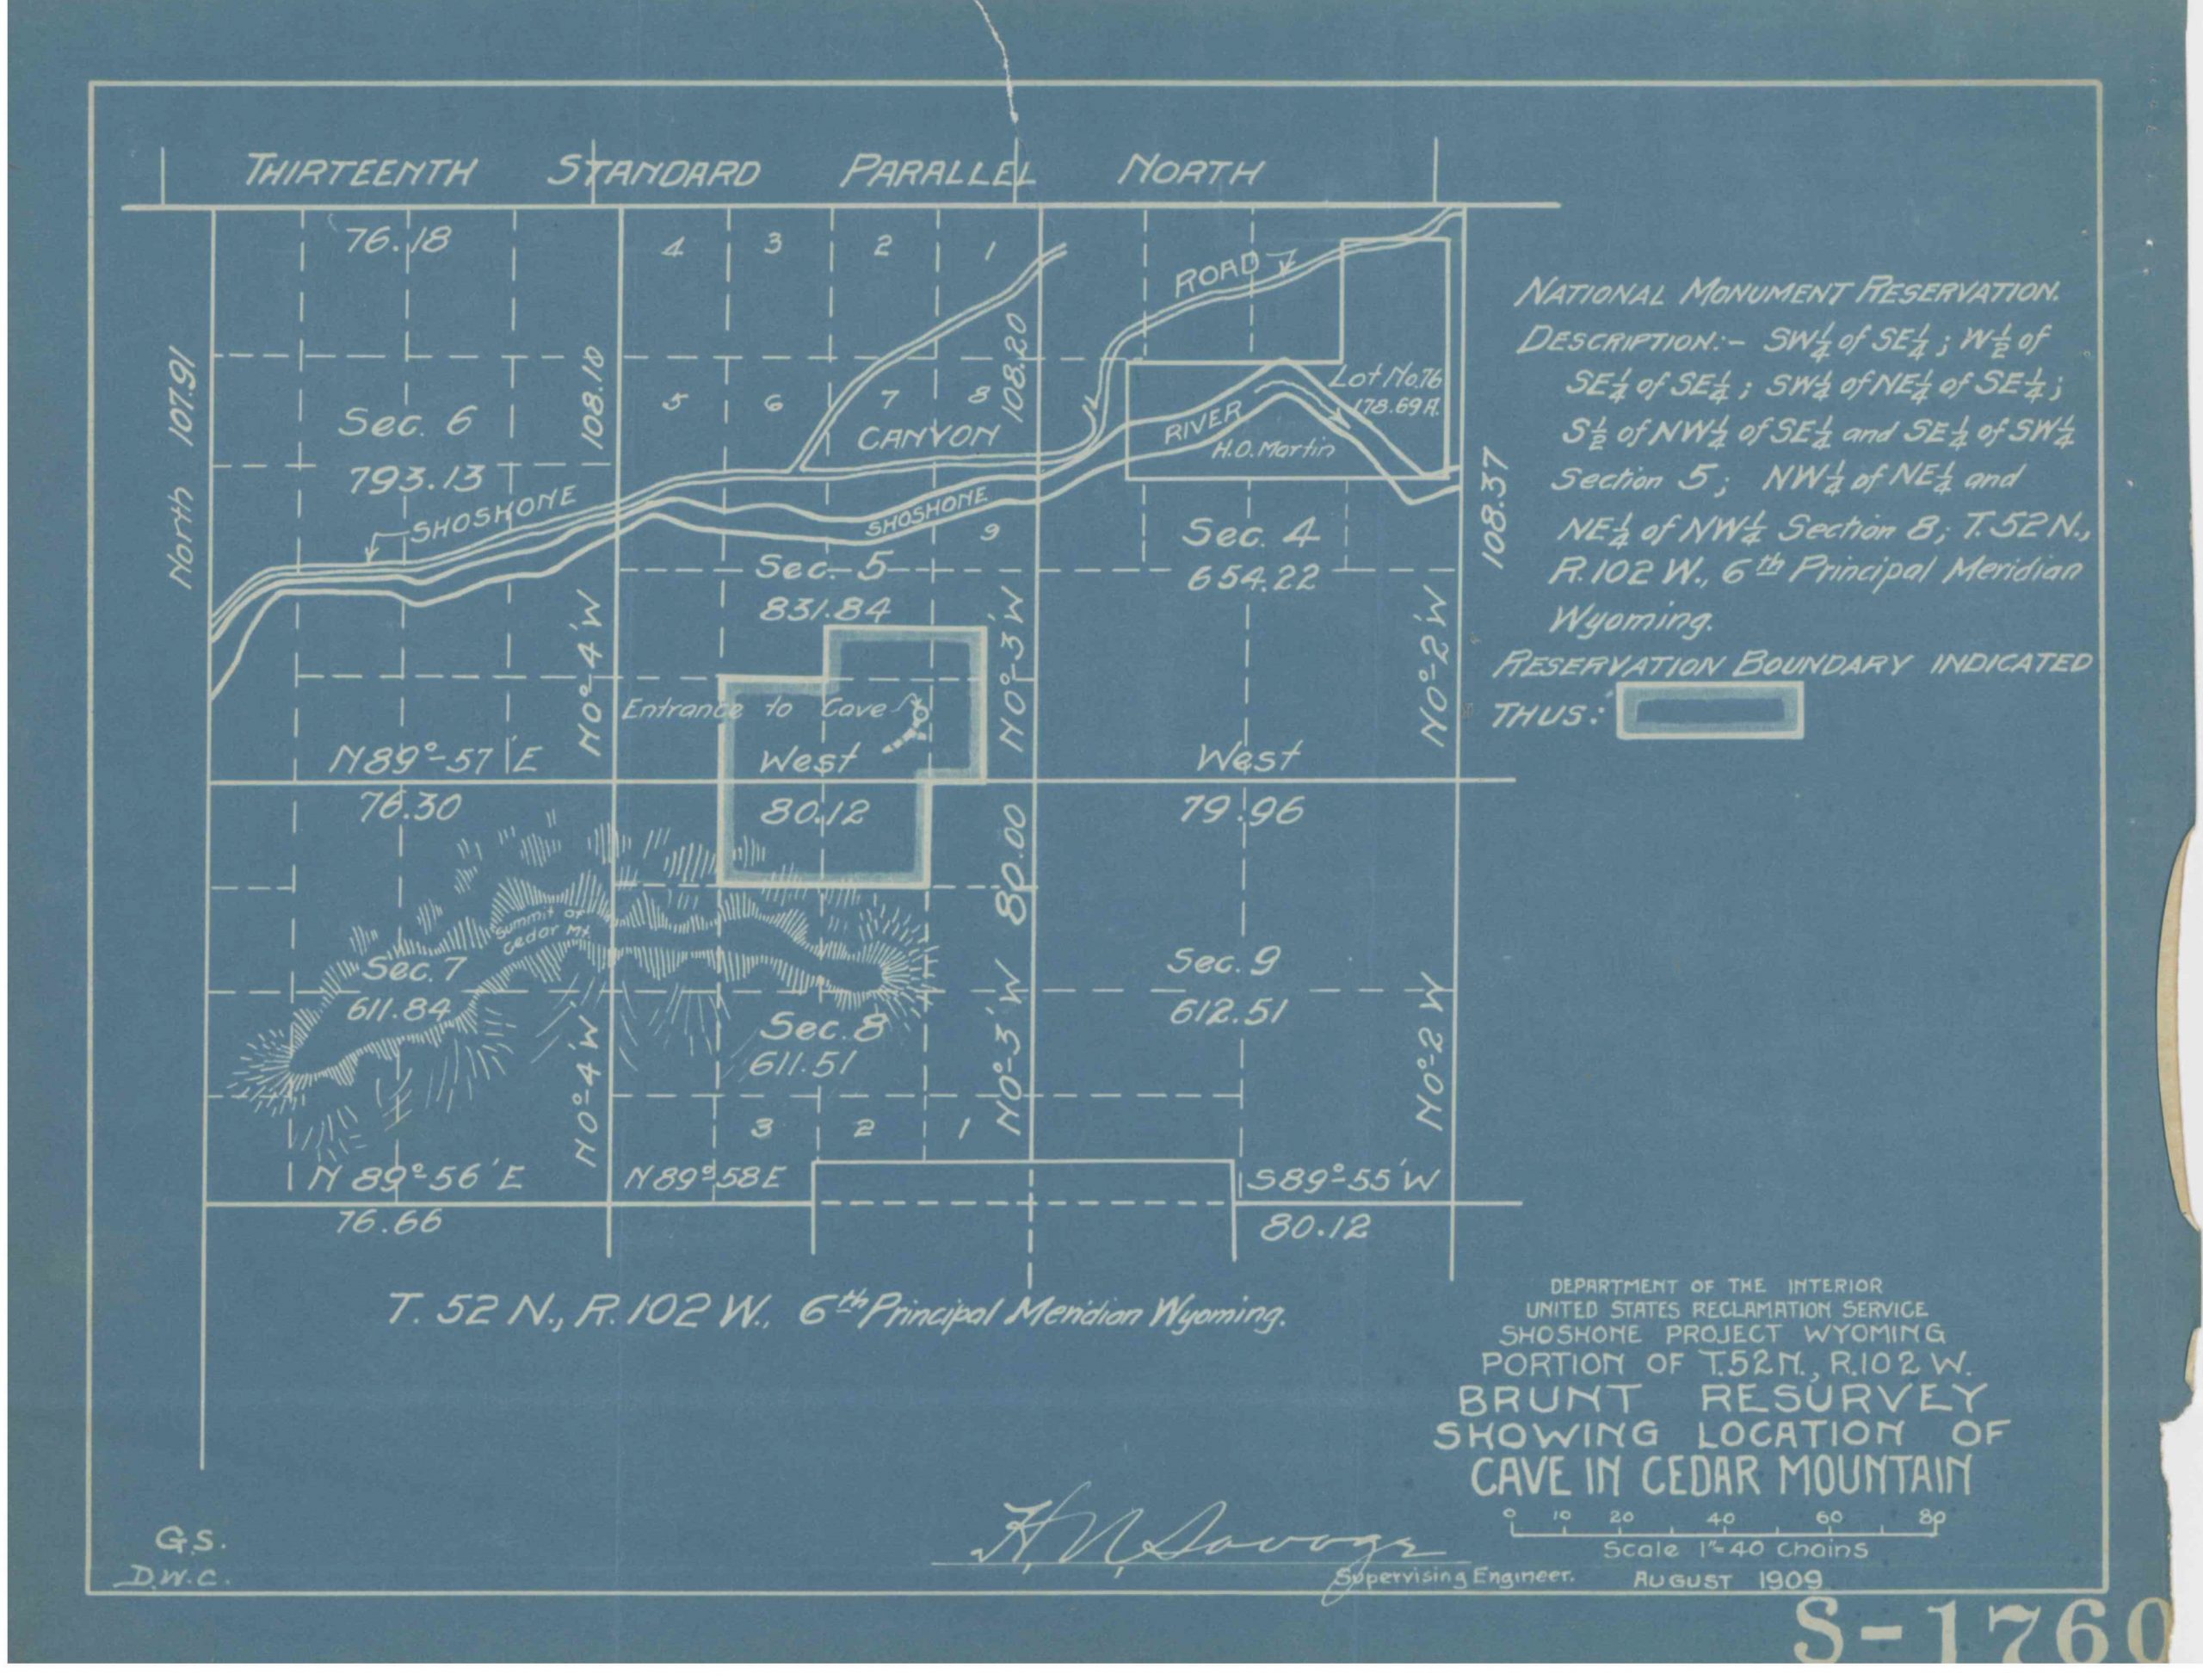 THIRTEENTH STANDARD PARALLEL NORTH
76.18
4 3 2 1
ROAD
North 107.91
108.10
108.20
5 6 7 8
CANYON
Sec. 6
793.13
SHOSHONE
Lot No.76
178.69 A.
RIVER
H.O. Martin
SHOSHONE
9
108.37
Sec. 5
831.84
Sec. 4
654.22
N0°-4'W
N0°-3'W
N0°-2'W
Entrance to Cave
N89°-57'E
West
West
76.30
80.12
79.96
80.00
Summit of
Cedar Mt.
Sec. 7
611.84
Sec. 8
611.51
Sec. 9
612.51
N0°-4'W
N0°-3'W
N0°-2'W
3 2 1
N 89°-56'E
N89°58E
S89°-55'W
76.66
80.12
T. 52 N., R. 102 W., 6th Principal Meridian Wyoming.
NATIONAL MONUMENT RESERVATION.
DESCRIPTION:- SW¼ of SE¼; W½ of
SE¼ of SE¼; SW¼ of NE¼ of SE¼;
S½ of NW¼ of SE¼ and SE¼ of SW¼
Section 5; NW¼ of NE¼ and
NE¼ of NW¼ Section 8; T. 52 N.,
R. 102 W., 6th Principal Meridian
Wyoming.
RESERVATION BOUNDARY INDICATED
THUS:
DEPARTMENT OF THE INTERIOR
UNITED STATES RECLAMATION SERVICE
SHOSHONE PROJECT WYOMING
PORTION OF T.52N., R.102 W.
BRUNT RESURVEY
SHOWING LOCATION OF
CAVE IN CEDAR MOUNTAIN
0 10 20 40 60 80
Scale 1"=40 Chains
AUGUST 1909
H. N. Savage
Supervising Engineer.
G.S.
D.W.C.
S-1760